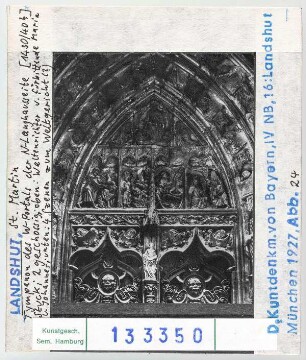 LANDSHUT, St. Martin
Tympanon des W-Portals der N-Langhausseite [1430/40%]
Stuck; 2 geschossig, oben: Weltenrichter v. fürbittende Maria
u. Johannes; unten: 4 Szenen zum Weltgericht(?)
D. Kunstdenkm. von Bayern, IV NB, 16: Landshut
München 1927, Abb. 24
Kunstgesch.
Sem. Hamburg
133350